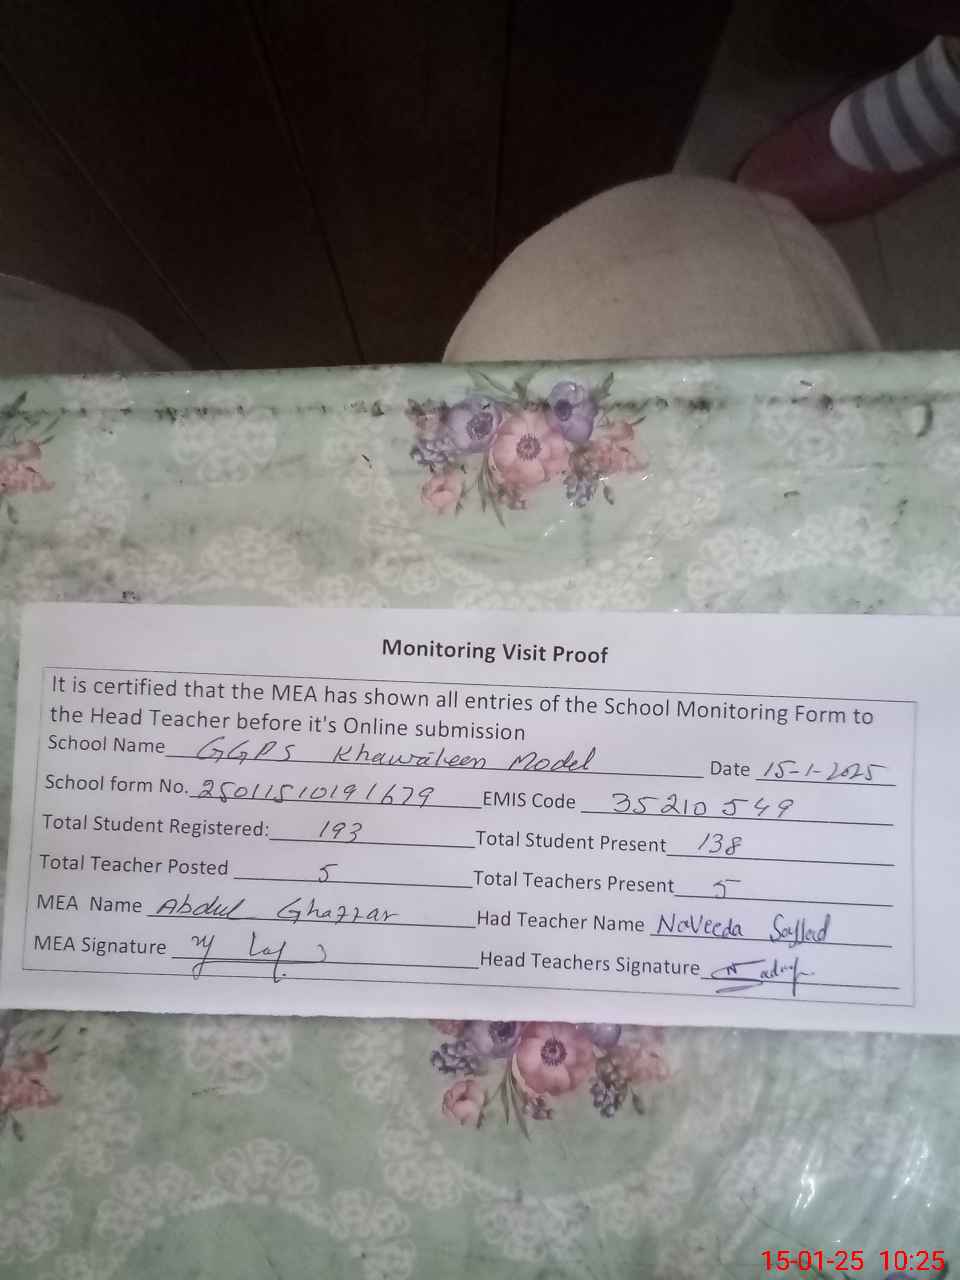 Monitoring Visit Proof
It is certified that the MEA has shown all entries of the School Monitoring Form to
the Head Teacher before it's Online submission
School Name GGPS Khawateen Model Date 15-1-2025
School form No. 25011510191679 EMIS Code 35210549
Total Student Registered: 193 Total Student Present 138
Total Teacher Posted 5 Total Teachers Present 5
MEA Name Abdul Ghaffar Had Teacher Name Naveeda
MEA Signature Head Teachers Signature
15-01-25 10:25